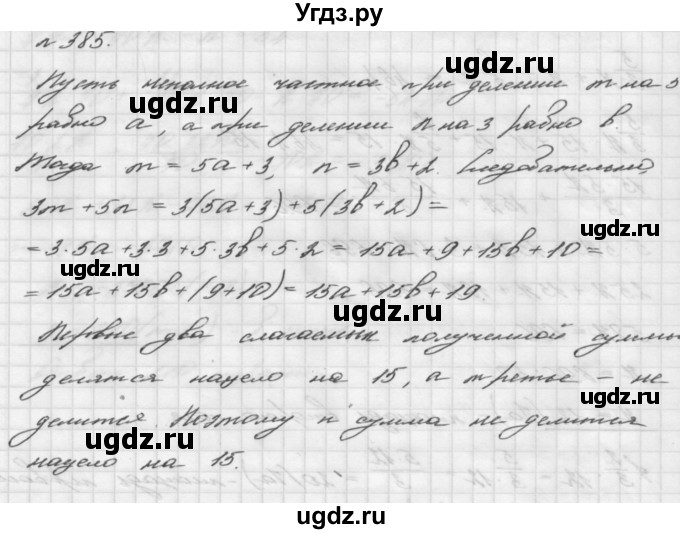 Угдз.ру
№ 385.
Пусть неполное частное при делении m на 5
ugdz.ru ugdz.ru
равно a, а при делении n на 3 равно b.
Тогда m = 5a + 3, n = 3b + 2. Следовательно,
ugdz.ru
3m + 5n = 3(5a + 3) + 5(3b + 2) =
= 3·5a + 3·3 + 5·3b + 5·2 = 15a + 9 + 15b + 10 =
ugdz.ru ugdz.ru
= 15a + 15b + (9 + 10) = 15a + 15b + 19
Первые два слагаемых полученной суммы
ugdz.ru
делятся нацело на 15, а третье – не
ugdz.ru
делится. Поэтому и сумма не делится
ugdz.ru
нацело на 15.
ugdz.ru